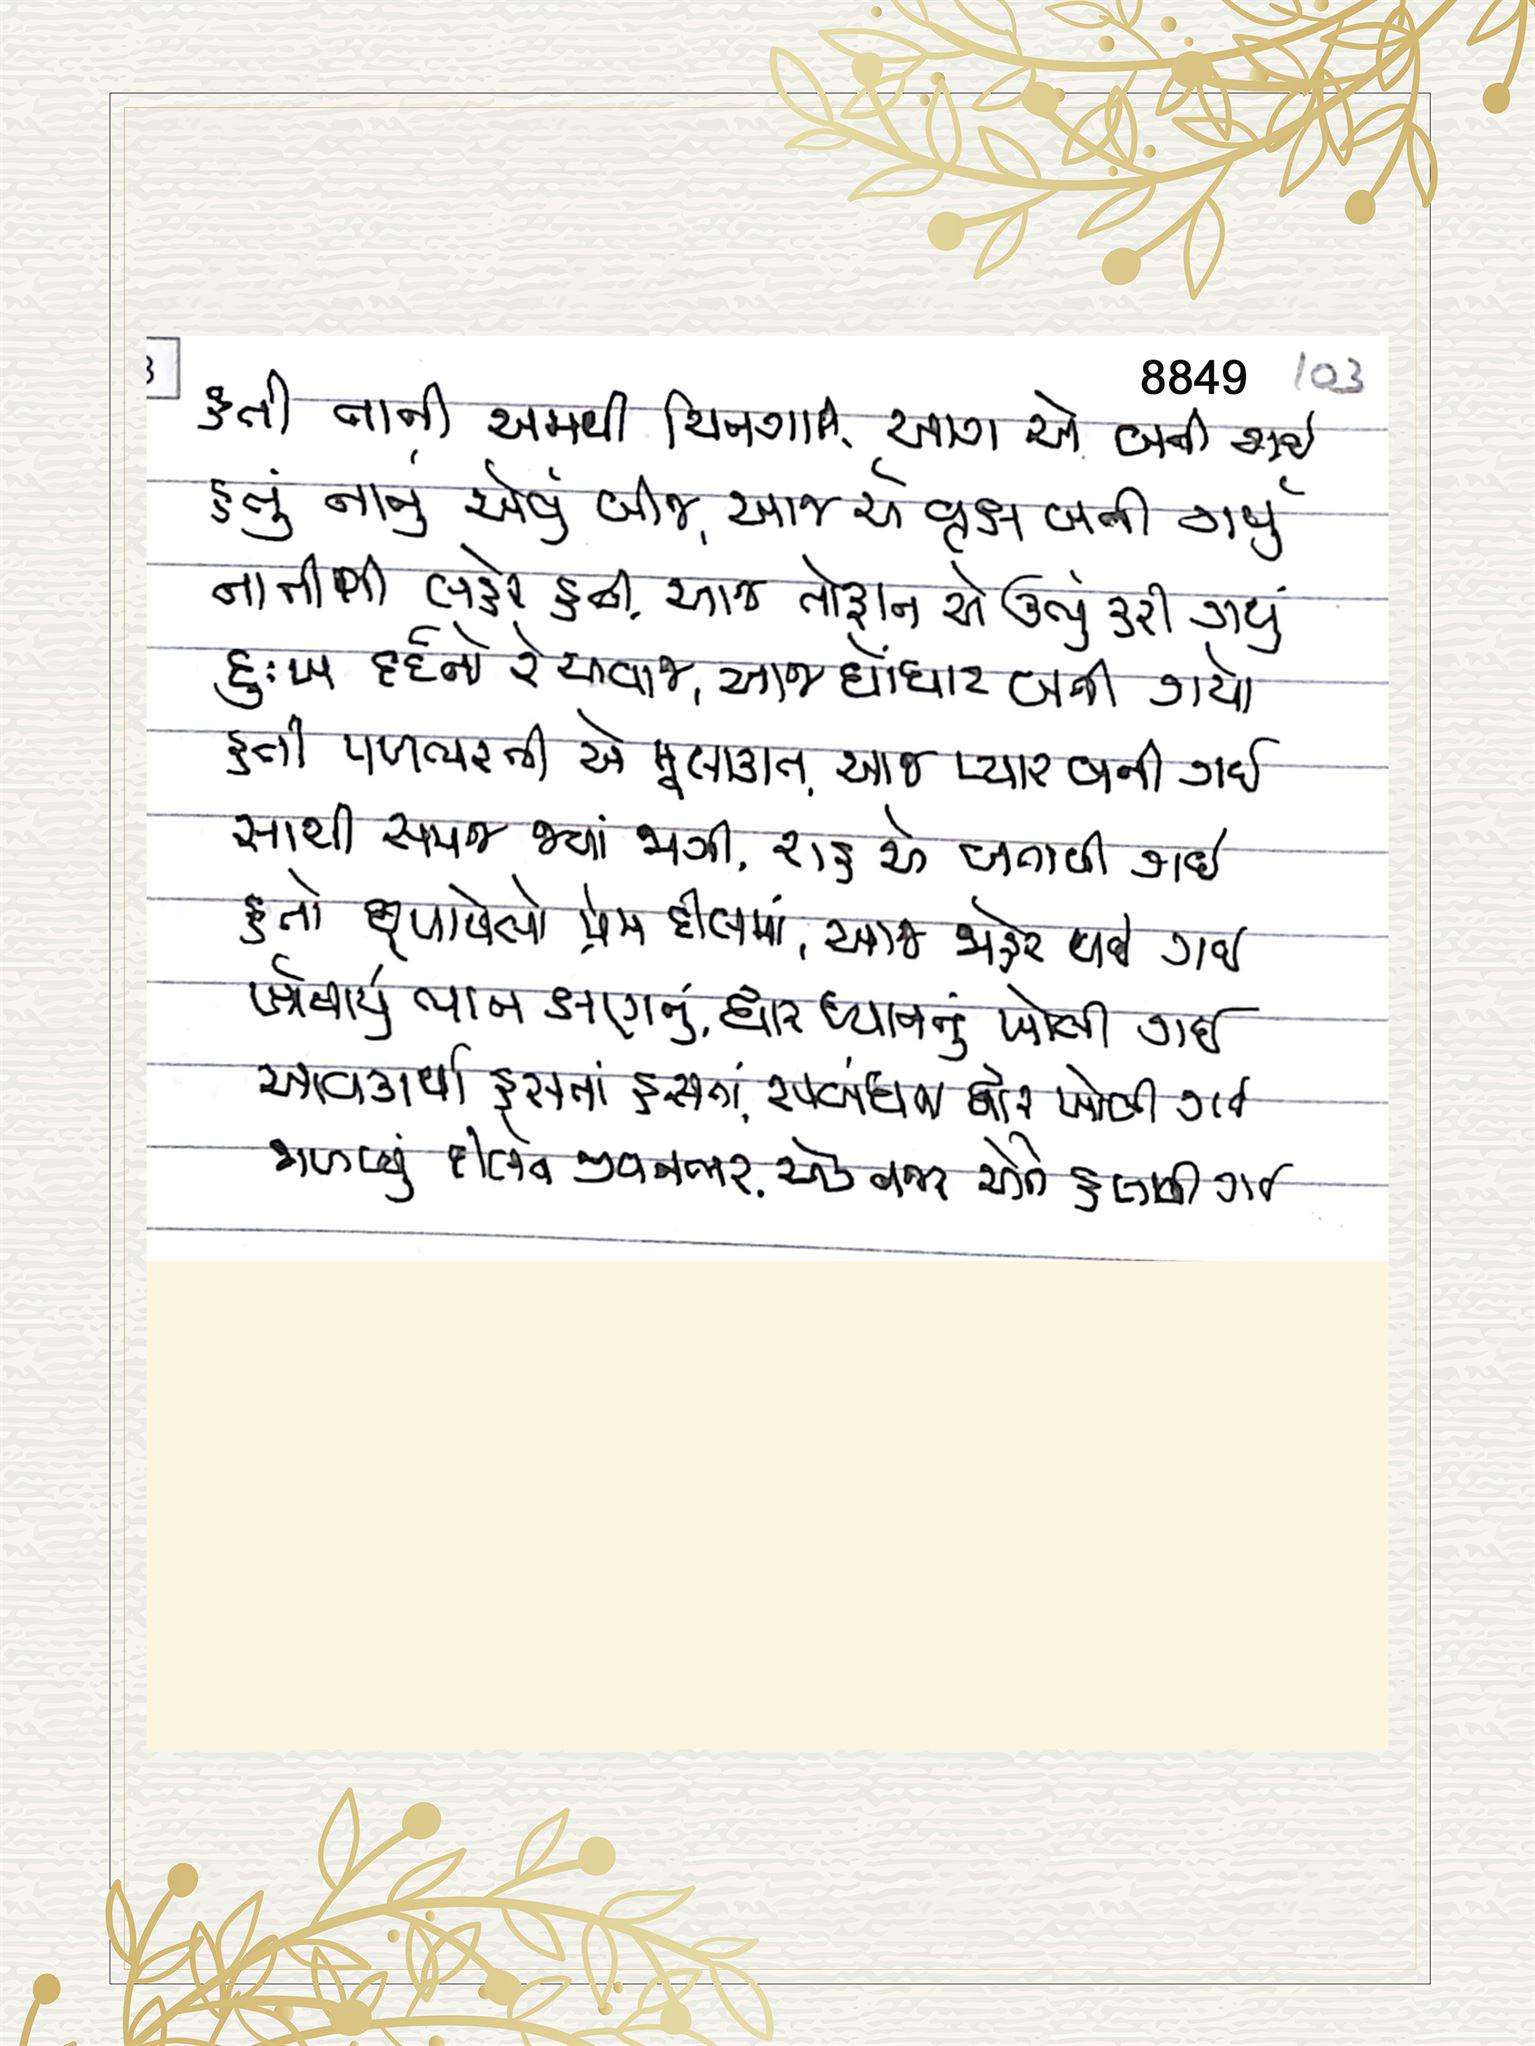 8849 103
હતી નાની અમથી ચિનગારી, આગ એ બની ગઈ
હતું નાનું એવું બીજ, આજ એ વૃક્ષ બની ગયું
નાનીશી લહેર હતી, આજ તોફાન એ ઊભું કરી ગયું
દુઃખ દર્દનો રે અવાજ, આજ ઘોંઘાટ બની ગયો
હતી પળભરની એ મુલાકાત, આજ પ્યાર બની ગઈ
સાચી સમજ જ્યાં મળી, રાહ એ બતાવી ગઈ
હતો છૂપાયેલો પ્રેમ દીલમાં, આજ મહેર થઈ ગઈ
ખોવાયું ભાન ક્ષણનું, દ્વાર ધ્યાનનું ખોલી ગઈ
આવકાર્યા હસતાં હસતાં, સંબંધના દ્વાર ખોલી ગઈ
મળ્યું જીવનભર, એક નજર એને ગઈ